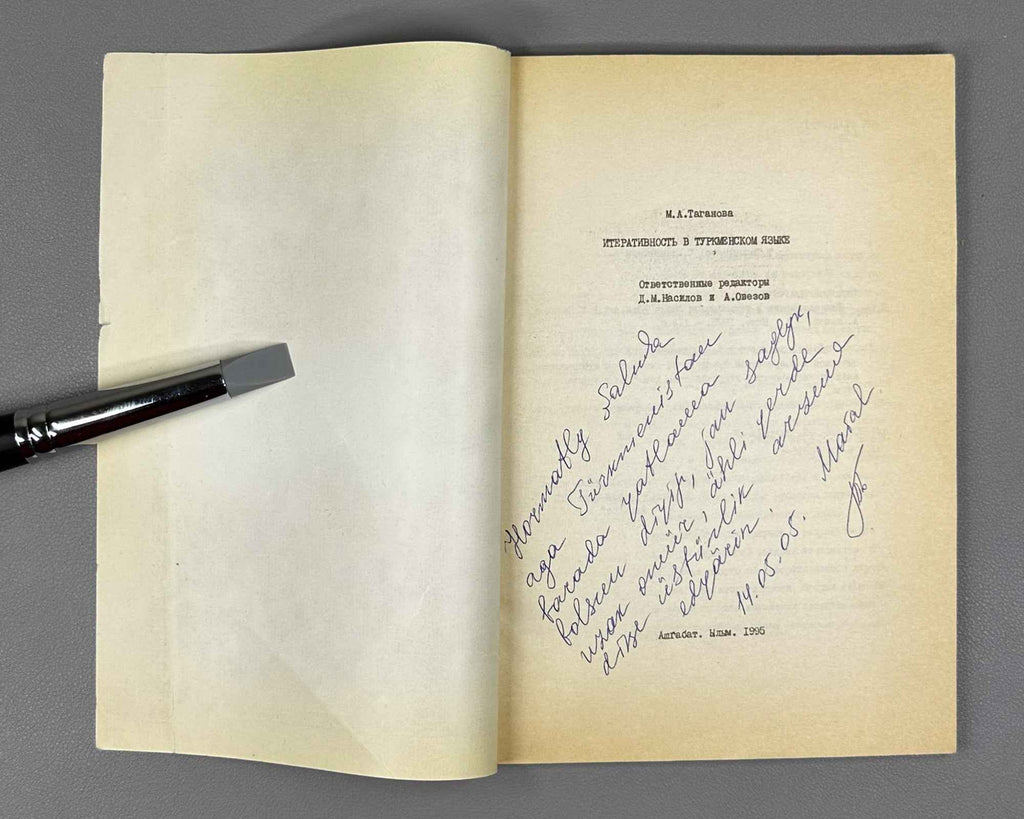 М.А.Таганова
ИТЕРАТИВНОСТЬ В ТУРКМЕНСКОМ ЯЗЫКЕ
Ответственные редакторы
Д.М.Насилов и А.Овезов
Hormatly
aga Türkmenistan
barada ýatlama
bolsun diýip, jan saglyk,
uzak ömür, ähli ýerde
diňe üstünlik arzuw
edýärin.
14.05.05.
Maral
Ашгабат. Ылым. 1995